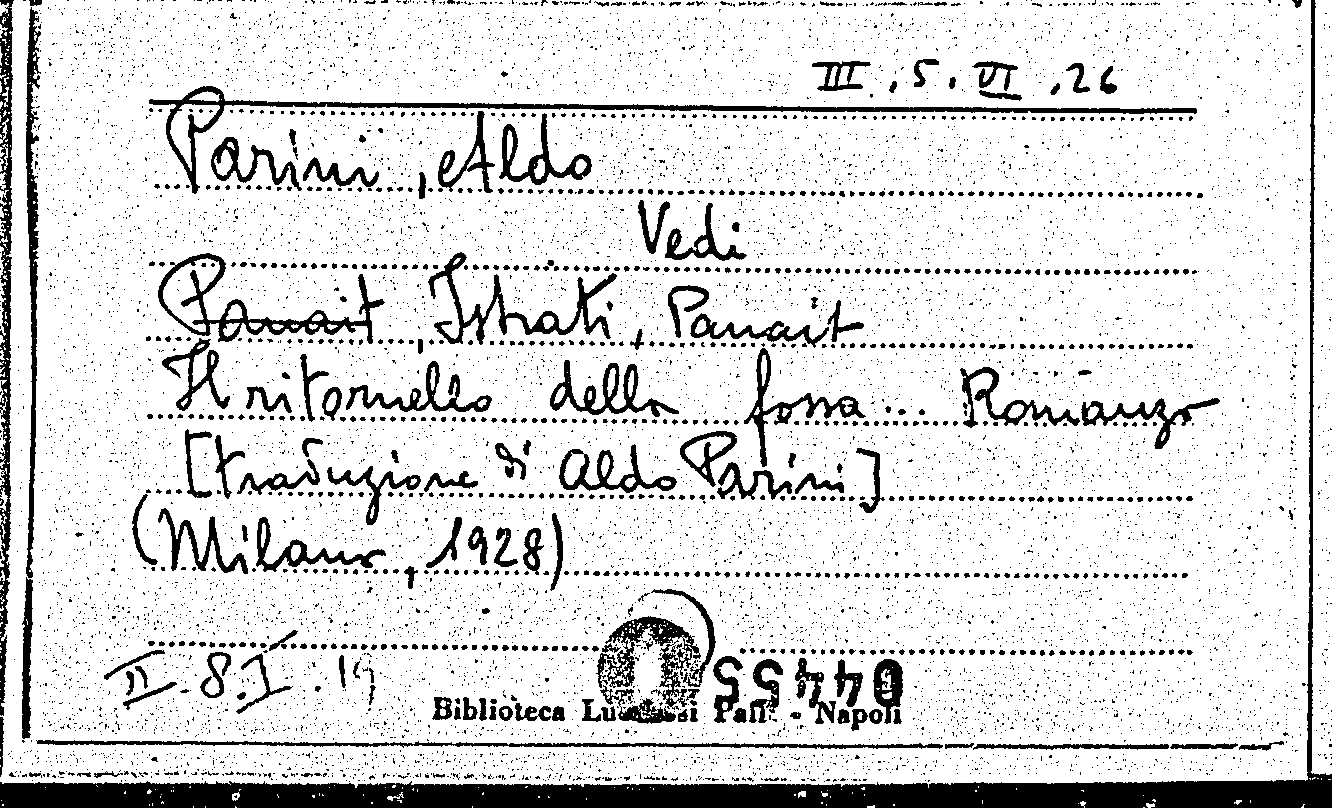 III.5.VI.26
Parini, Aldo
Vedi
Panait, Istrati, Panait
Il ritornello della fossa... Romanzo
[traduzione di Aldo Parini]
(Milano, 1928)
II.8.I.19
04455
Biblioteca Lucchesi Palli - Napoli